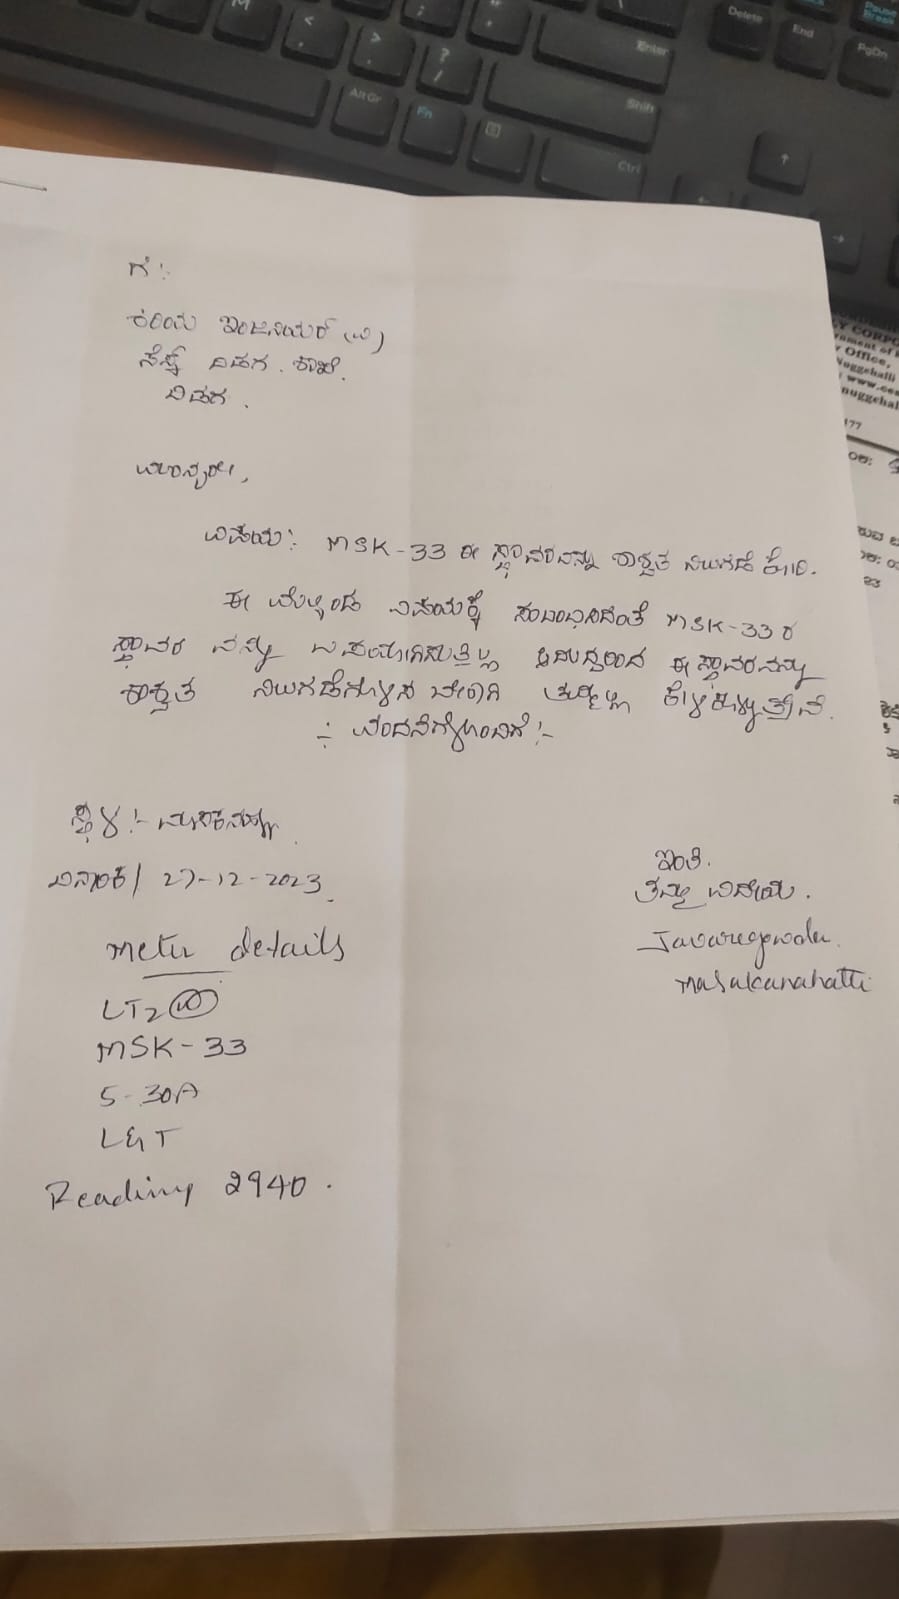 M
<
,
>
.
?
/
;
"
\
Enter
Shift
AltGr
Fn
Ctrl
Delete
End
PgDn
Pause
Break
Y CORPO
Office,
Nuggehalli
177
ಗೆ:
ಕಿರಿಯ ಇಂಜಿನಿಯರ್ (ವಿ)
ಸೆಸ್ಕ್ ದಿಡಗ ಶಾಖೆ.
ದಿಡಗ.
ಮಾನ್ಯರೇ,
ವಿಷಯ: MSK-33 ಈ ಸ್ಥಾವರವನ್ನು ಶಾಶ್ವತ ನಿಲುಗಡೆ ಕೋರಿ.
ಈ ಮೇಲ್ಕಂಡ ವಿಷಯಕ್ಕೆ ಸಂಬಂಧಿಸಿದಂತೆ MSK-33 ರ
ಸ್ಥಾವರ ವನ್ನು ಉಪಯೋಗಿಸುತ್ತಿಲ್ಲ ಆದುದ್ದರಿಂದ ಈ ಸ್ಥಾವರವನ್ನು
ಶಾಶ್ವತ ನಿಲುಗಡೆಗೊಳಿಸ ಬೇಕಾಗಿ ತಮ್ಮಲ್ಲಿ ಕೇಳಿಕೊಳ್ಳುತ್ತೇನೆ.
÷ ವಂದನೆಗಳೊಂದಿಗೆ :-
ಸ್ಥಳ :- ಮಸಕನಹಳ್ಳಿ
ದಿನಾಂಕ/ 27-12-2023
ಇಂತಿ.
ತಮ್ಮ ವಿಧೇಯ.
Javaregowda
Masakanahatti
Meter details
LT2
MSK-33
5-30A
L&T
Reading 2940.